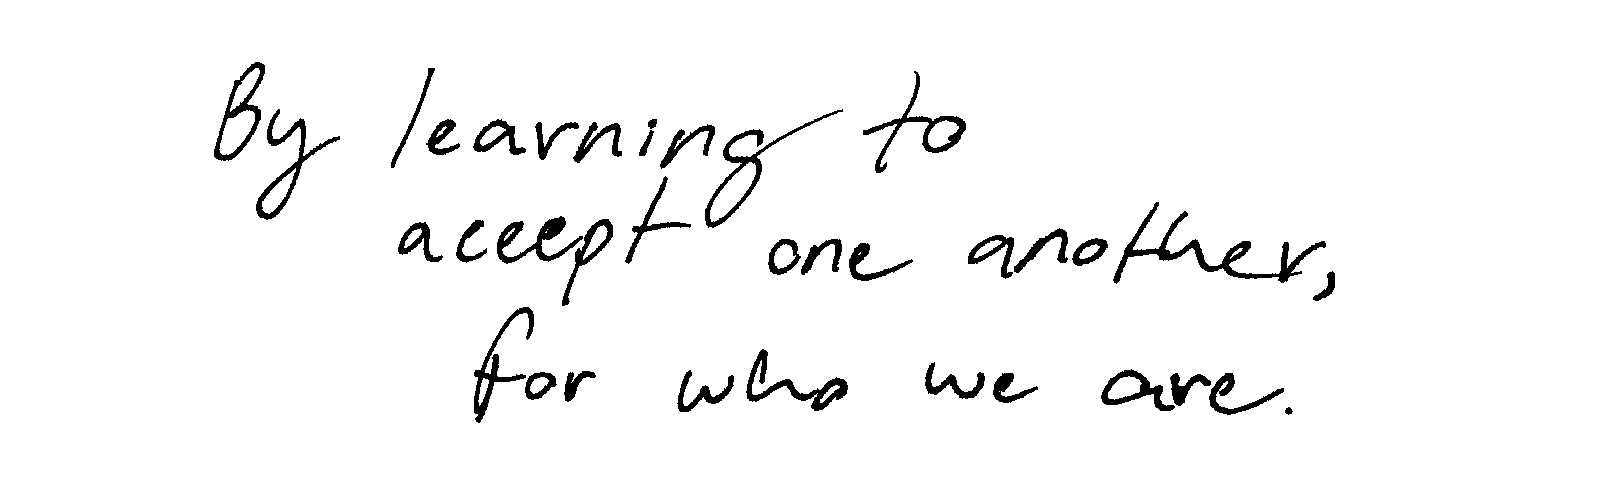 By learning to
accept one another,
for who we are.